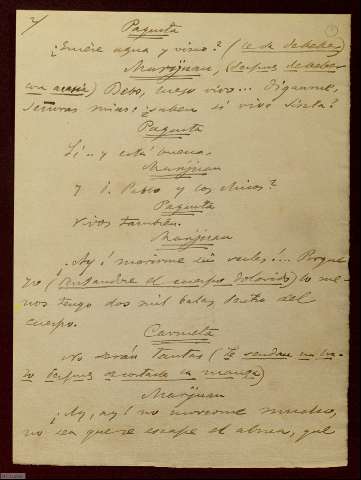 Paquita
¿Quiere agua y vino? (Le da de beber)
Marijuan, (después de beber
con ansia) Bebo, luego vivo... Díganme,
señoras mías: ¿saben si vive Siseta?
Paquita
Sí... y está buena.
Marijuan
Y D. Pablo y los chicos?
Paquita
Vivos también.
Marijuan
¡Ay! morirme sin verles!... Porque
yo (tentándose el cuerpo dolorido) lo me-
nos tengo dos mil balas dentro del
cuerpo.
Carmeta
No serán tantas (Le vendan un bra-
zo después de cortada la manga)
Marijuan
¡Ay, ay! no moverme mucho,
no sea que se escape el alma, que